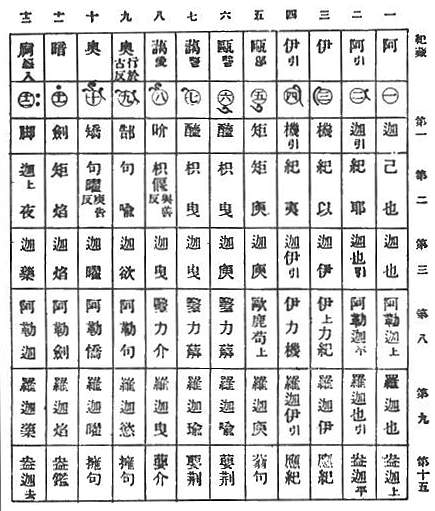 紀蔵 第一 第二 第三 第八 第九 第十五
一 阿 一 迦 己也 迦也 阿勒迦上 羅迦也 盎迦上
二 阿引 二 迦引 紀耶 迦也引 阿勒迦平 羅迦也引 盎迦平
三 伊 三 機 紀以 迦伊 伊上力紀 羅迦伊 應紀
四 伊引 四 機引 紀夷 迦伊引 伊力機 羅迦伊引 應紀
五 甌 五 矩 矩庾 迦庾 歐鹿苟上 羅迦庾 翁句
六 甌翳 六 醯 枳曳 迦庾 翳力 羅迦喻 荆
七 藹翳 七 醯 枳曳 迦曳 翳力 羅迦瑜 荆
八 藹愛 八 吤 枳偃與蓋反 迦曳 翳力介 羅迦曳 介
九 奧行於古反 九 郜 句喻 迦欲 阿勒句 羅迦慾 擁句
十 奧 十 矯 句曜庾告反 迦曜 阿勒憍 羅迦曜 擁句
十一 暗 十一 劍 矩焰 迦焰 阿勒劍 羅迦焰 盎鑑
十二 十二 脚 迦上夜 迦藥 阿勒迦 羅迦藥 盎迦去